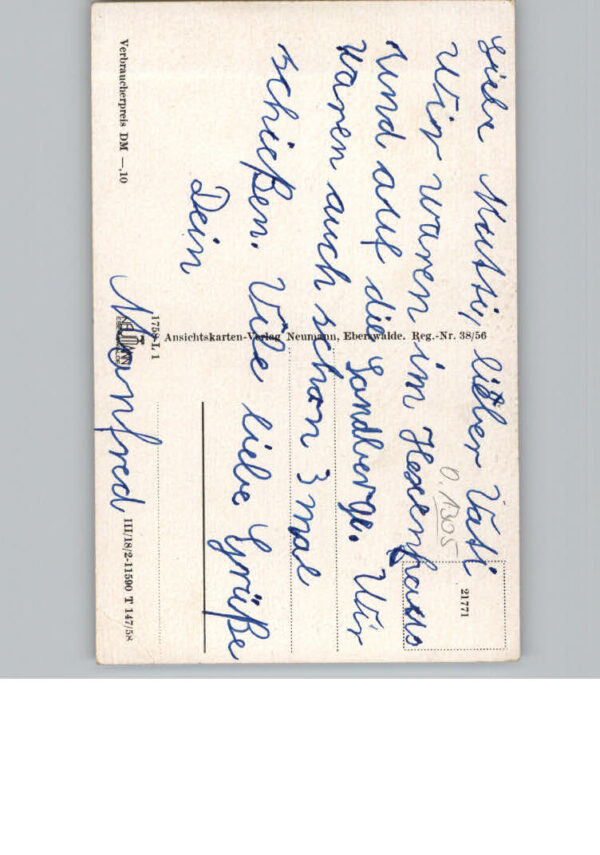 Liebe Mutti, lieber Vati
Wir waren im Hexenhaus
und auf die Sandberge. Wir
waren auch schon 3 mal
schießen. Viele liebe Grüße
Dein
Manfred
0.1305
21771
Ansichtskarten-Verlag Neumann, Eberswalde. Reg.-Nr. 38/56
1758 L 1
Verbraucherpreis DM —,10
III/18/2-11590 T 147/58